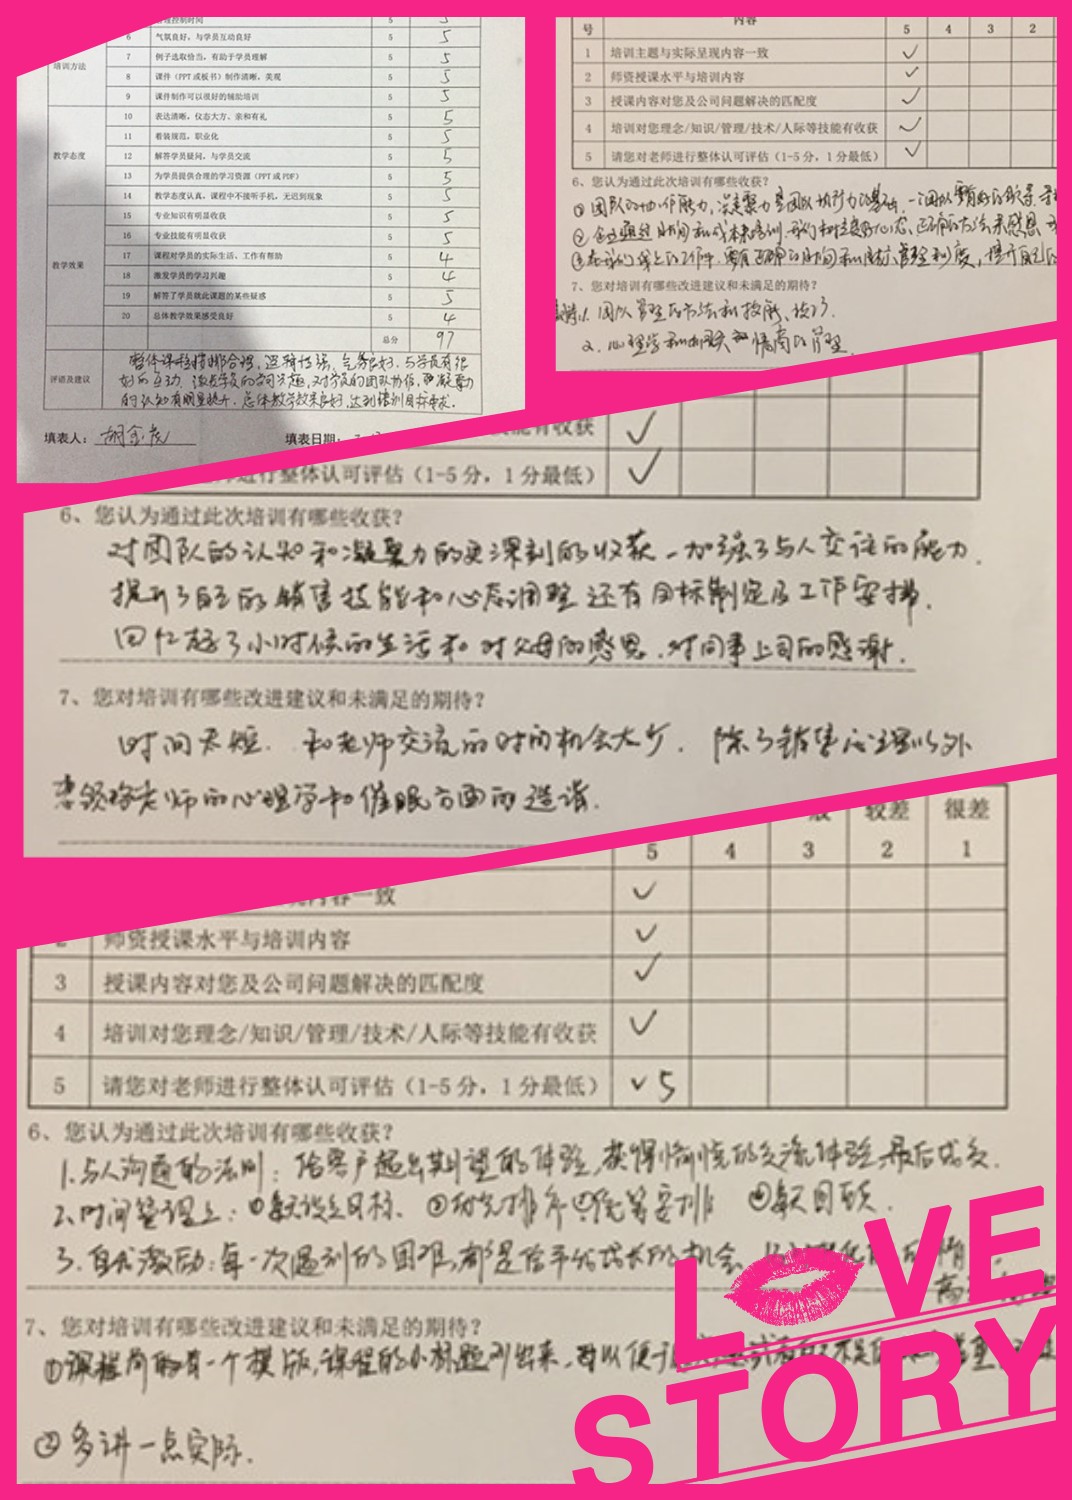 气氛良好，与学员互动良好 5 5
培训方法
7 例子选取恰当，有助于学员理解 5 5
8 课件（PPT 或板书）制作清晰，美观 5 5
9 课件制作可以很好的辅助培训 5 5
10 表达清晰，仪态大方、亲和有礼 5 5
11 着装规范，职业化 5 5
教学态度
12 解答学员疑问，与学员交流 5 5
13 为学员提供合理的学习资源（PPT 或 PDF） 5 5
14 教学态度认真，课程中不接听手机，无迟到现象 5 5
15 专业知识有明显收获 5 5
16 专业技能有明显收获 5 5
教学效果
17 课程对学员的实际生活、工作有帮助 5 4
18 激发学员的学习兴趣 5 4
19 解答了学员就此课题的某些疑惑 5 5
20 总体教学效果感受良好 5 4
总分 97
评语及建议
整体课程安排合理，逻辑性强，气氛良好，与学员有很
好的互动，激发学员的学习兴趣，对学员的团队协作，和凝聚力
的认知有明显提升，总体教学效果良好，达到培训目标要求。
填表人：
填表日期：
号 内容 5 4 3 2
1 培训主题与实际呈现内容一致 ✓
2 师资授课水平与培训内容 ✓
3 授课内容对您及公司问题解决的匹配度 ✓
4 培训对您理念/知识/管理/技术/人际等技能有收获 ✓
5 请您对老师进行整体认可评估（1-5 分，1 分最低） ✓
6、您认为通过此次培训有哪些收获？
① 团队的协作能力，凝聚力是团队
②
③
7、您对培训有哪些改进建议和未满足的期待？
1. 团队管理的方法和技能
2. 心理学和 情商的管理
技能有收获 ✓
进行整体认可评估（1-5 分，1 分最低） ✓
6、您认为通过此次培训有哪些收获？
对团队的认知和凝聚力的更深刻的收获，加强了与人交往的能力.
提升了自己的销售技能和心态调整 还有目标制定及工作安排.
回忆起了小时候的生活和对父母的感恩.对同事上司的感谢.
7、您对培训有哪些改进建议和未满足的期待？
时间太短. 和老师交流的时间机会太少. 除了销售心理以外
想领略老师的心理学和催眠方面的造诣.
较差 很差
5 4 3 2 1
内容一致 ✓
2 师资授课水平与培训内容 ✓
3 授课内容对您及公司问题解决的匹配度 ✓
4 培训对您理念/知识/管理/技术/人际等技能有收获 ✓
5 请您对老师进行整体认可评估（1-5 分，1 分最低） ✓5
6、您认为通过此次培训有哪些收获？
1.与人沟通的法则：给客户超出期望的体验，获得愉悦的交流体验，最后成交.
2.时间管理上：①每天设立目标. ②排序 ③ 安排 ④每天回顾.
3.自我激励：每一次遇到的困难，都是给予我成长的机会
7、您对培训有哪些改进建议和未满足的期待？
①课程前的有一个模版，课程的小标题列出来，可以便于
②多讲一点实际.
LOVE
STORY